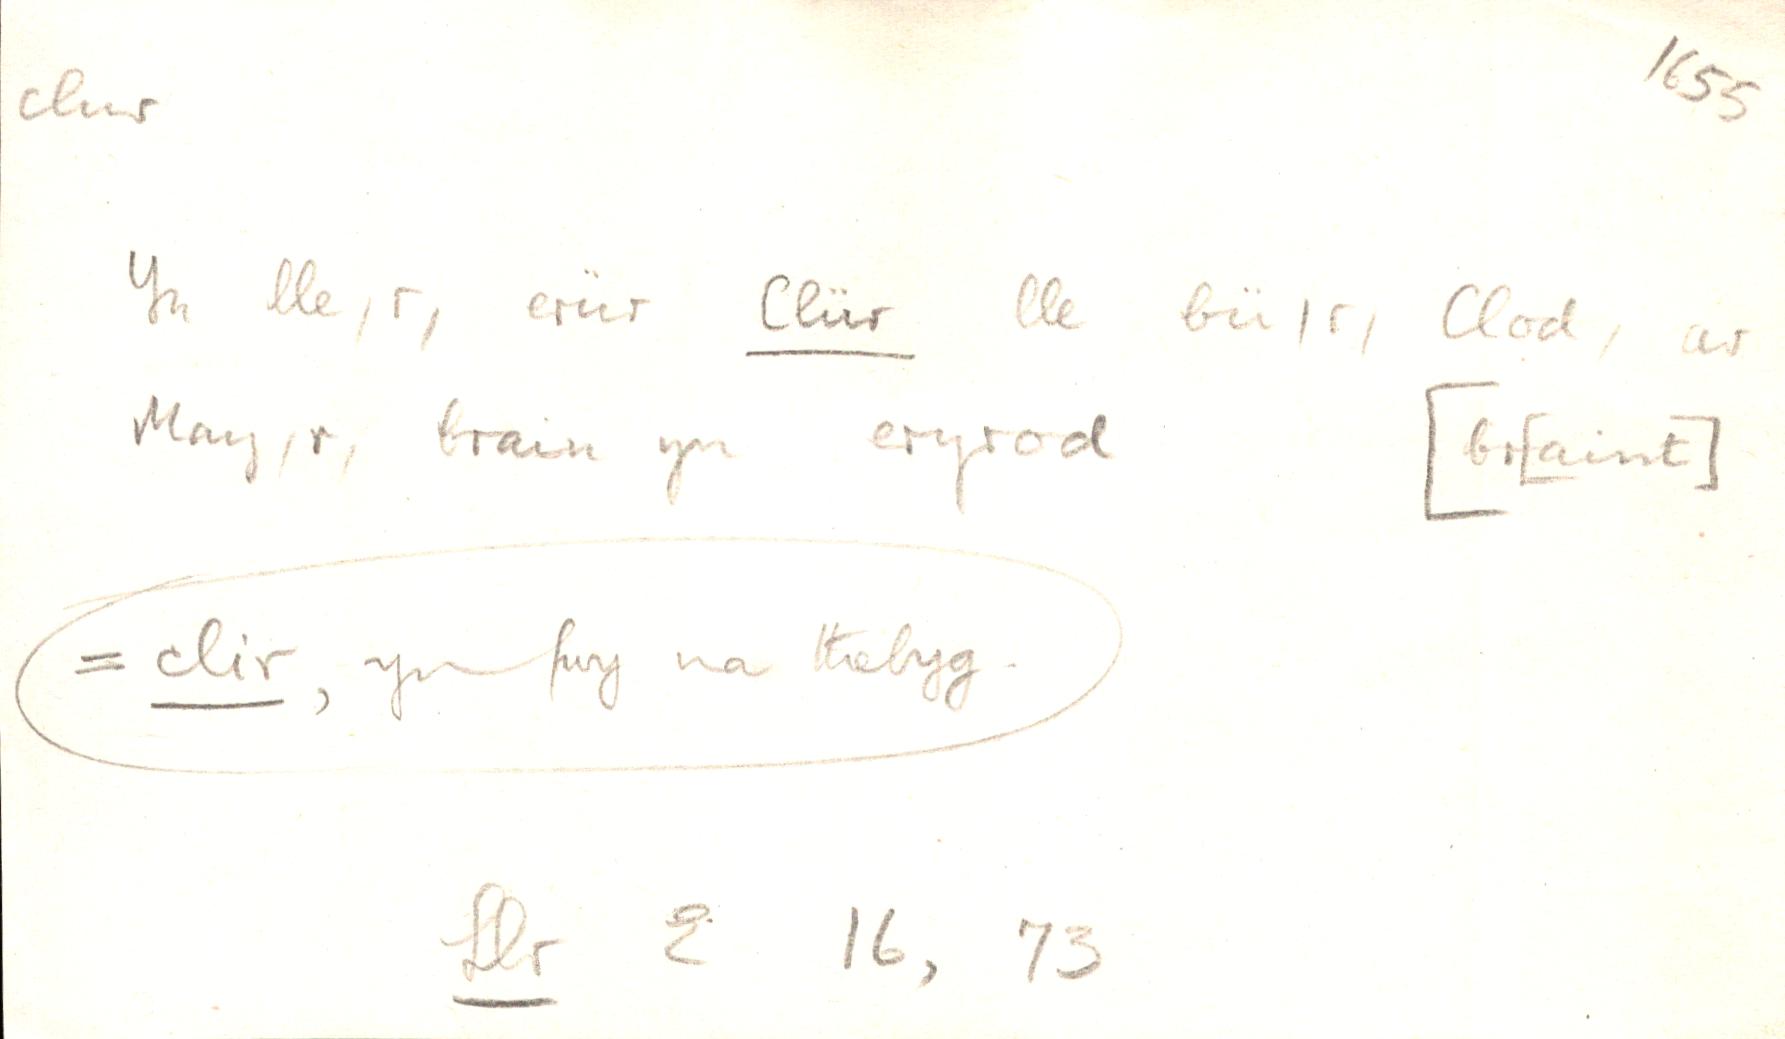 clur
1655
Yn lle,r, erür Clür lle bü,r, Clod, ar
May,r, brain yn eryrod [br[aint]
= clir, yn fwy na thebyg.
Llr E 16, 73